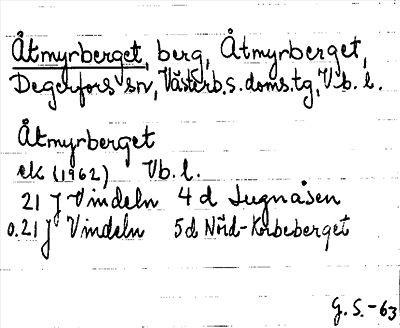 Åtmyrberget, berg, Åtmyrberget,
Degerfors sn, Västerb.s.doms.tg, Vb. l.
Åtmyrberget
ek (1962) Vb. l.
21 J Vindeln 4 d Lugnåsen
0.21 J Vindeln 5d Nörd-Korbeberget
G. S. -63